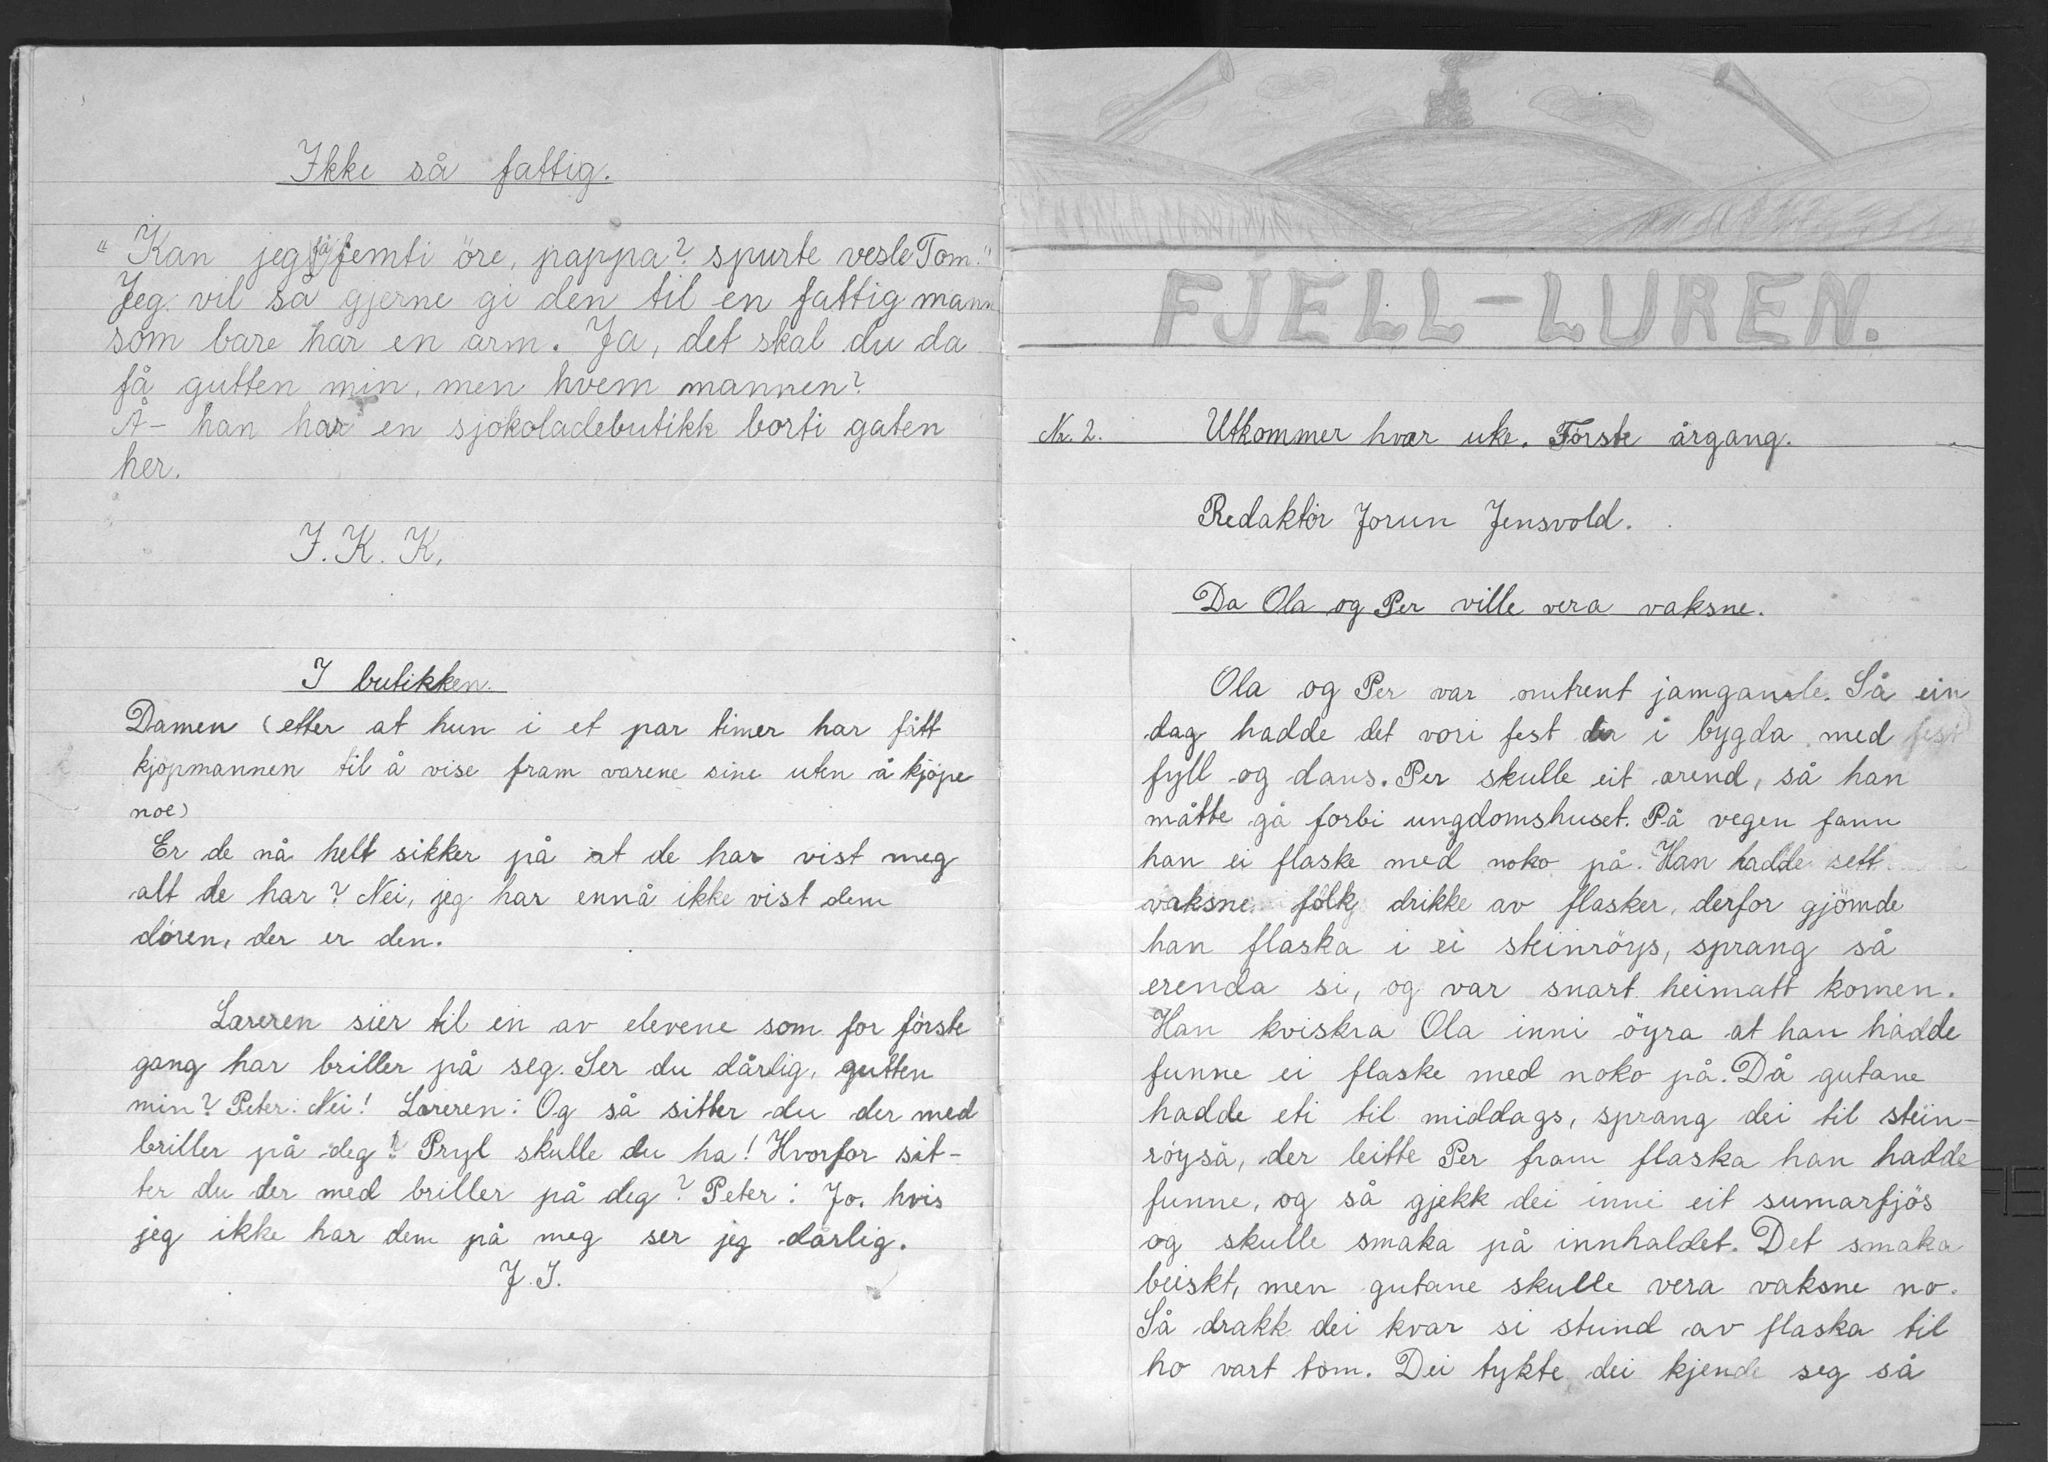 Ikke så fattig.
"Kan jeg få femti öre, pappa? spurte vesle Tom."
Jeg vil så gjerne gi den til en fattig mann
som bare har en arm. Ja, det skal du da
få gutten min, men hvem mannen?
Å- han har en sjokoladebutikk borti gaten
her.
I. K. K.
I butikken.
Damen (etter at hun i et par timer har fått
kjøpmannen til å vise fram varene sine uten å kjöpe
noe)
Er de nå helt sikker på at de har vist meg
alt de har? Nei, jeg har ennå ikke vist dem
døren, der er den.
Læreren sier til en av elevene som for förste
gang har briller på seg. Ser du dårlig, gutten
min? Peter: Nei! Læreren: Og så sitter du der med
briller på deg? Pryl skulle du ha! Hvorfor sit-
ter du der med briller på deg? Peter: Jo. hvis
jeg ikke har dem på meg ser jeg dårlig.
J. I.
FJELL-LUREN.
Nr. 2. Utkommer hver uke. Første årgang.
Redaktör Jorun Jensvold.
Da Ola og Per ville vera vaksne.
Ola og Per var omtrent jamgamle. Så ein
dag hadde det vori fest der i bygda med
fyll og dans. Per skulle eit ærend, så han
måtte gå forbi ungdomshuset. På vegen fann
han ei flaske med noko på. Han hadde sett
vaksne folk drikke av flasker, derfor gjömde
han flaska i ei steinröys, sprang så
erenda si, og var snart heimatt komen.
Han kviskra Ola inni öyra at han hadde
funne ei flaske med noko på. Då gutane
hadde eti til middags, sprang dei til stein-
röyså, der leitte Per fram flaska han hadde
funne, og så gjekk dei inni eit sumarfjös
og skulle smaka på innhaldet. Det smaka
beiskt, men gutane skulle vera vaksne no.
Så drakk dei kvar si stund av flaska til
ho vart tom. Dei tykte dei kjende seg så